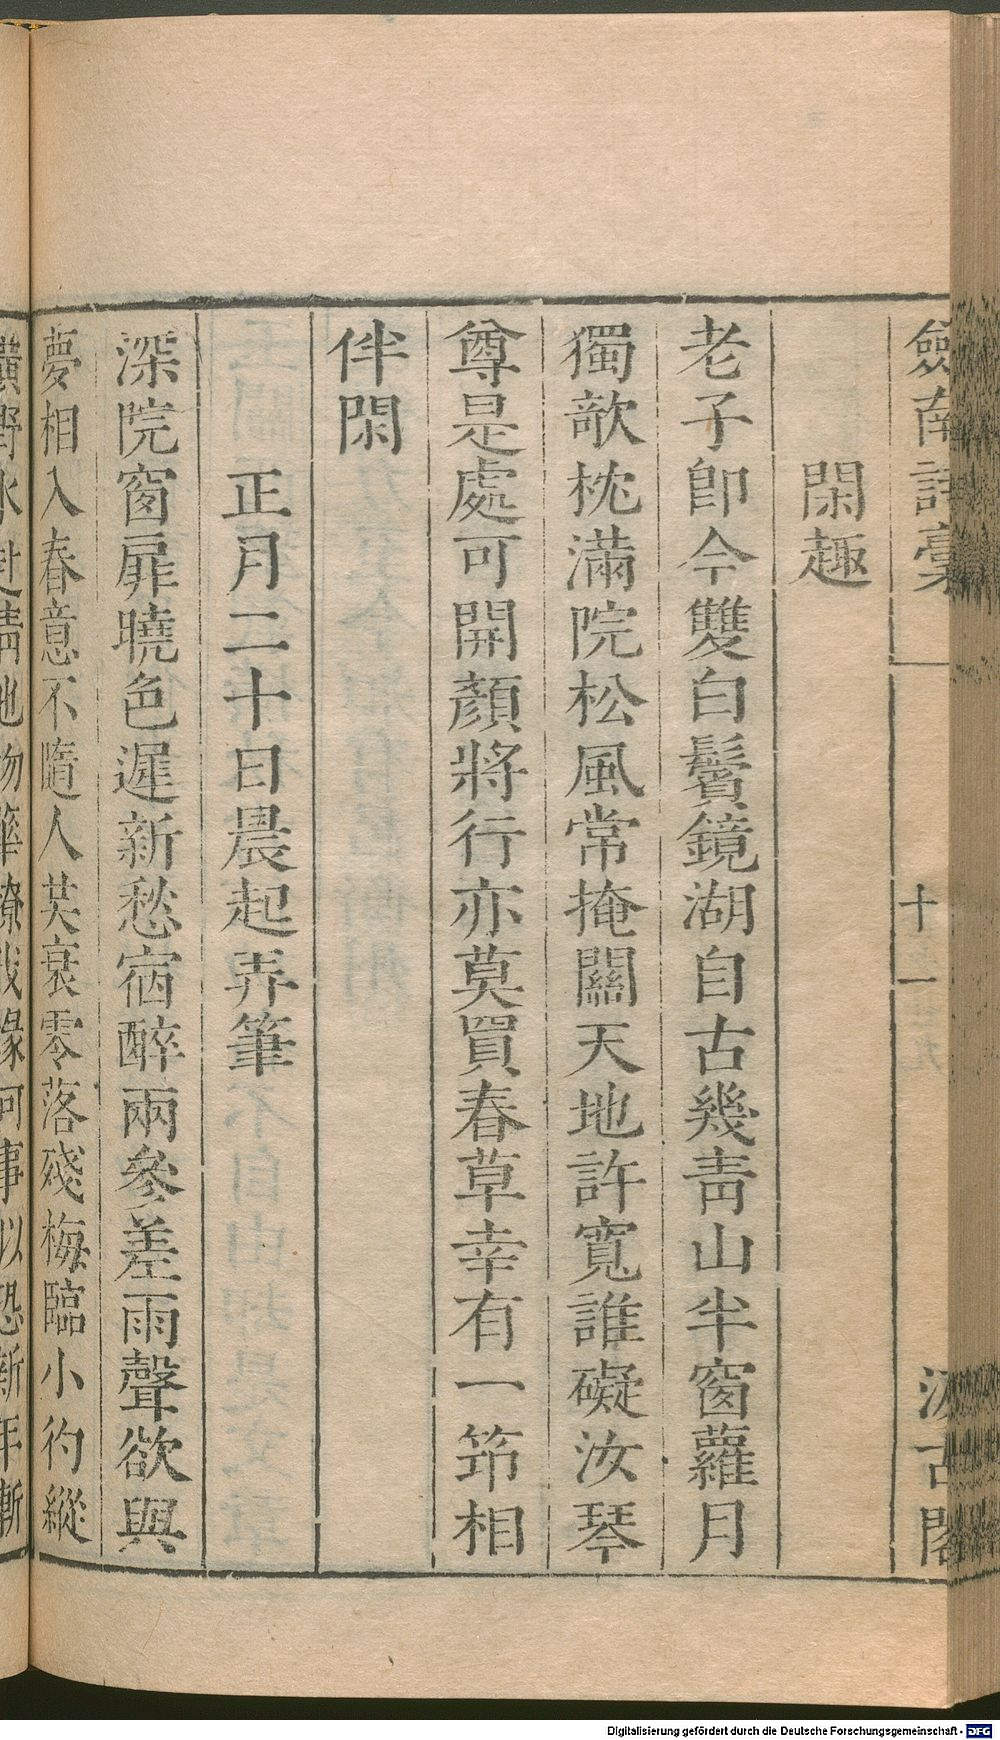 劒南詩稾 十一 汲古閣
閑趣
老子卽今雙白鬢鏡湖自古幾靑山半窗蘿月
獨欹枕滿院松風常掩關天地許寬誰礙汝琴
尊是處可開顏將行亦莫買春草幸有一筇相
伴閑
正月二十日晨起弄筆
深院窗扉曉色遲新愁宿醉兩參差雨聲欲與
夢相入春意不隨人共衰零落殘梅臨小彴縱
橫野水赴淸池物華撩我緣何事似恐新年漸
Digitalisierung gefördert durch die Deutsche Forschungsgemeinschaft - DFG